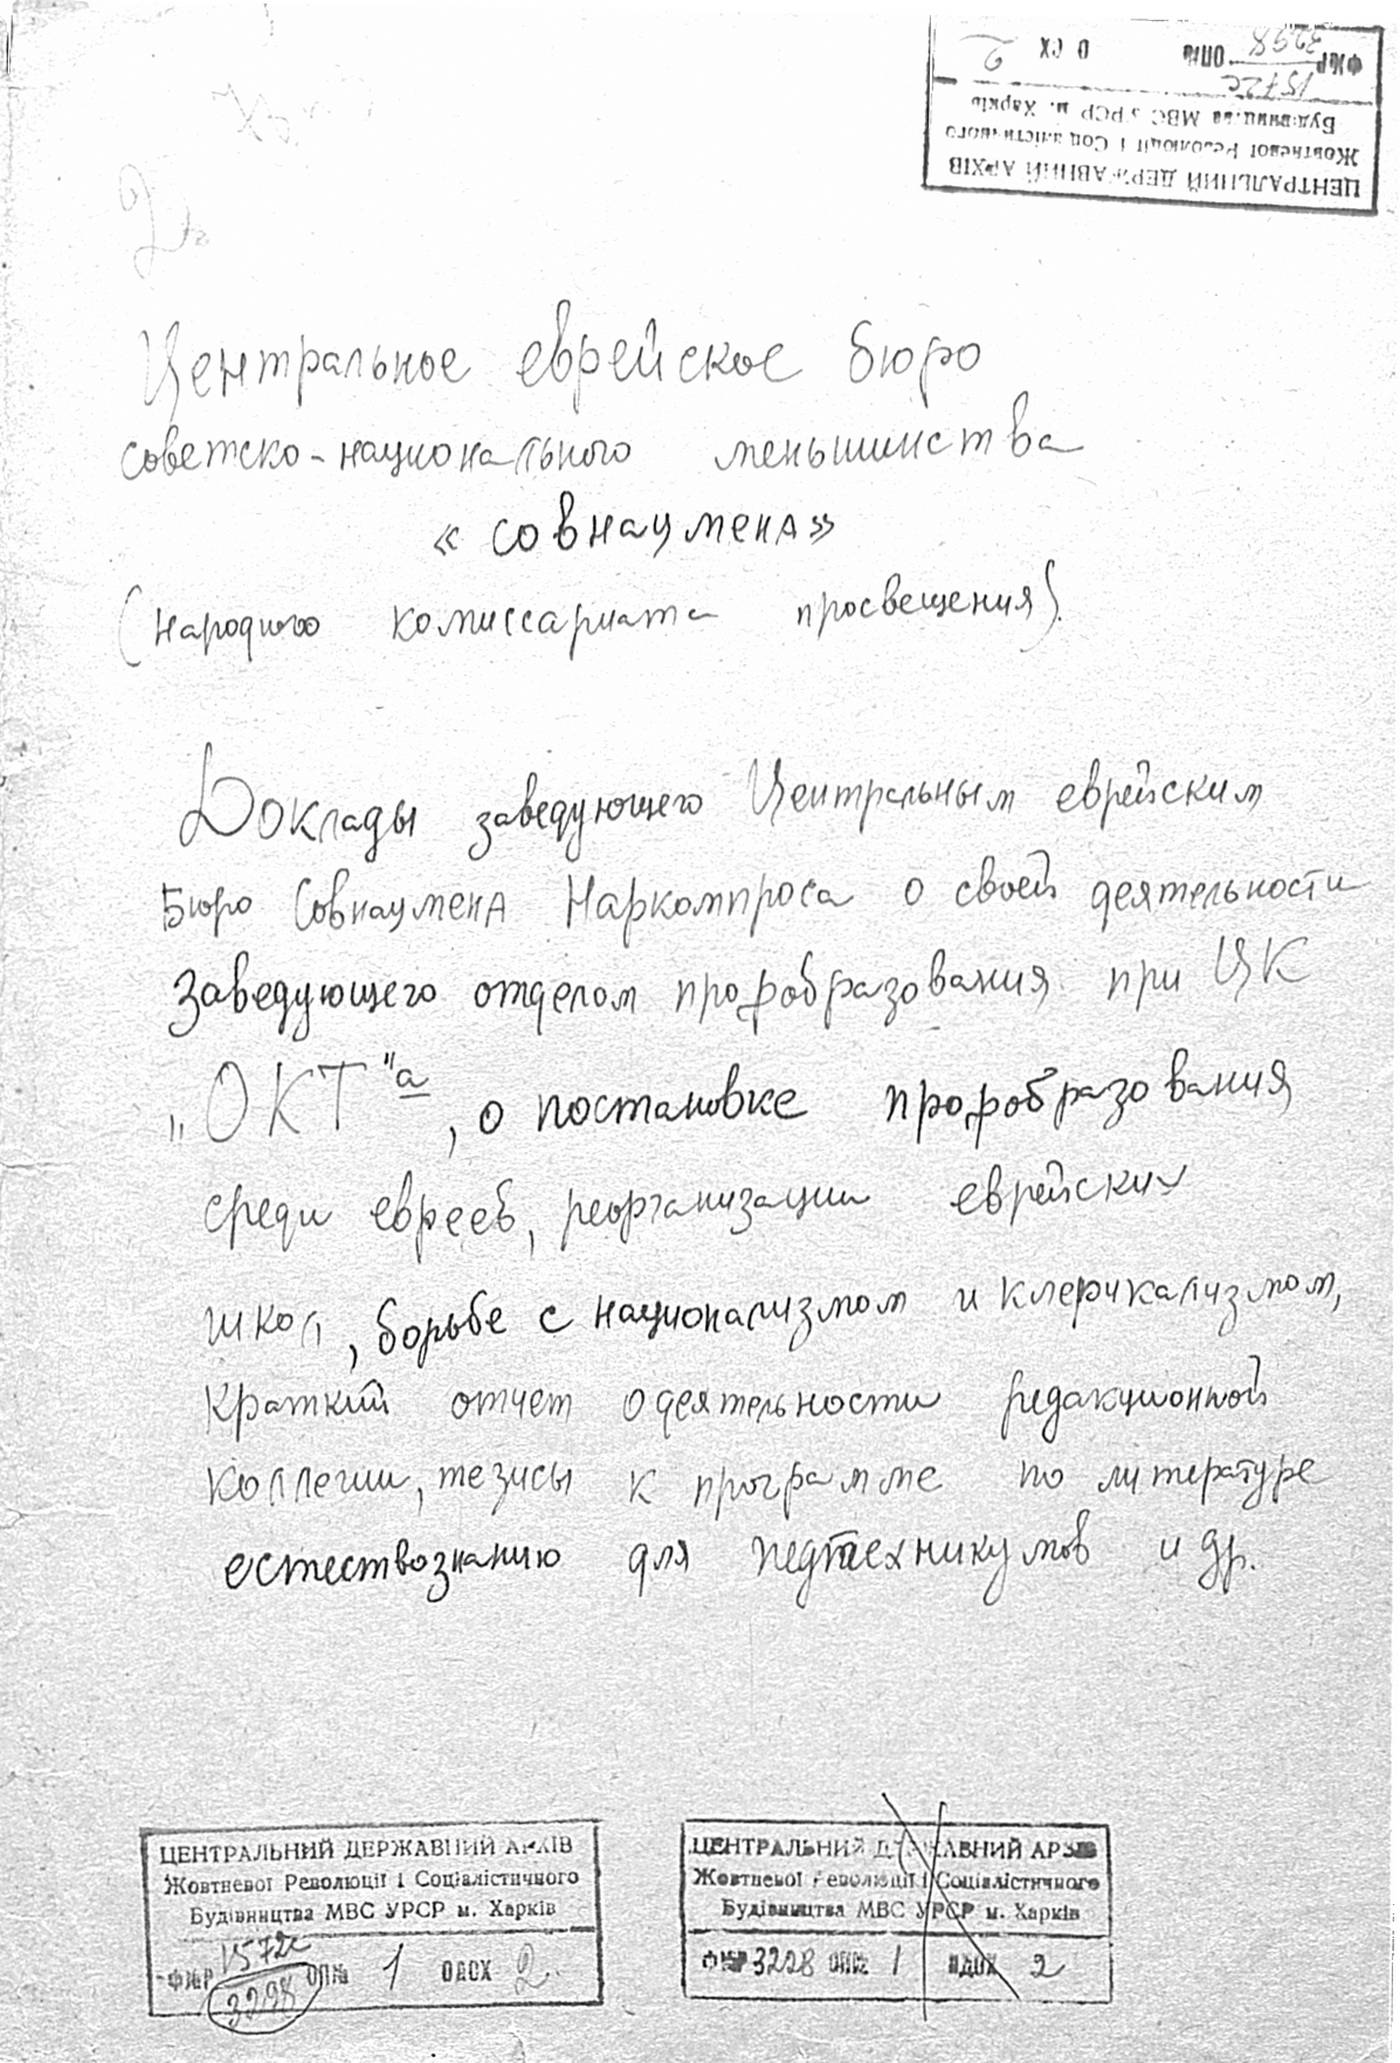 ЦЕНТРАЛЬНИЙ ДЕРЖАВНИЙ АРХІВ
Жовтневої Революції і Соціалістичного
Будівництва МВС УРСР м. Харків
1572с
ФNР 3298 ОПN О СХ 2
Центральное еврейское бюро
советско-национального меньшинства
«совнацмена»
(народного комиссариата просвещения).
Доклады заведующего Центральным еврейским
Бюро Совнацмена Наркомпроса о своей деятельности
Заведующего отделом профобразования при ЦК
„ОКТ"а, о постановке профобразования
среди евреев, реорганизации еврейских
школ, борьбе с национализмом и клерикализмом,
краткий отчет о деятельности редакционной
коллегии, тезисы к программе по литературе
естествознанию для педтехникумов и др.
ЦЕНТРАЛЬНИЙ ДЕРЖАВНИЙ АРХІВ
Жовтневої Революції і Соціалістичного
Будівництва МВС УРСР м. Харків
1572с
ФNР 3298 ОПN 1 ОДСХ 2
ЦЕНТРАЛЬНИЙ ДЕРЖАВНИЙ АРХІВ
Жовтневої Революції і Соціалістичного
Будівництва МВС УРСР м. Харків
ФNР 3228 ОПN 1 ОДСХ 2